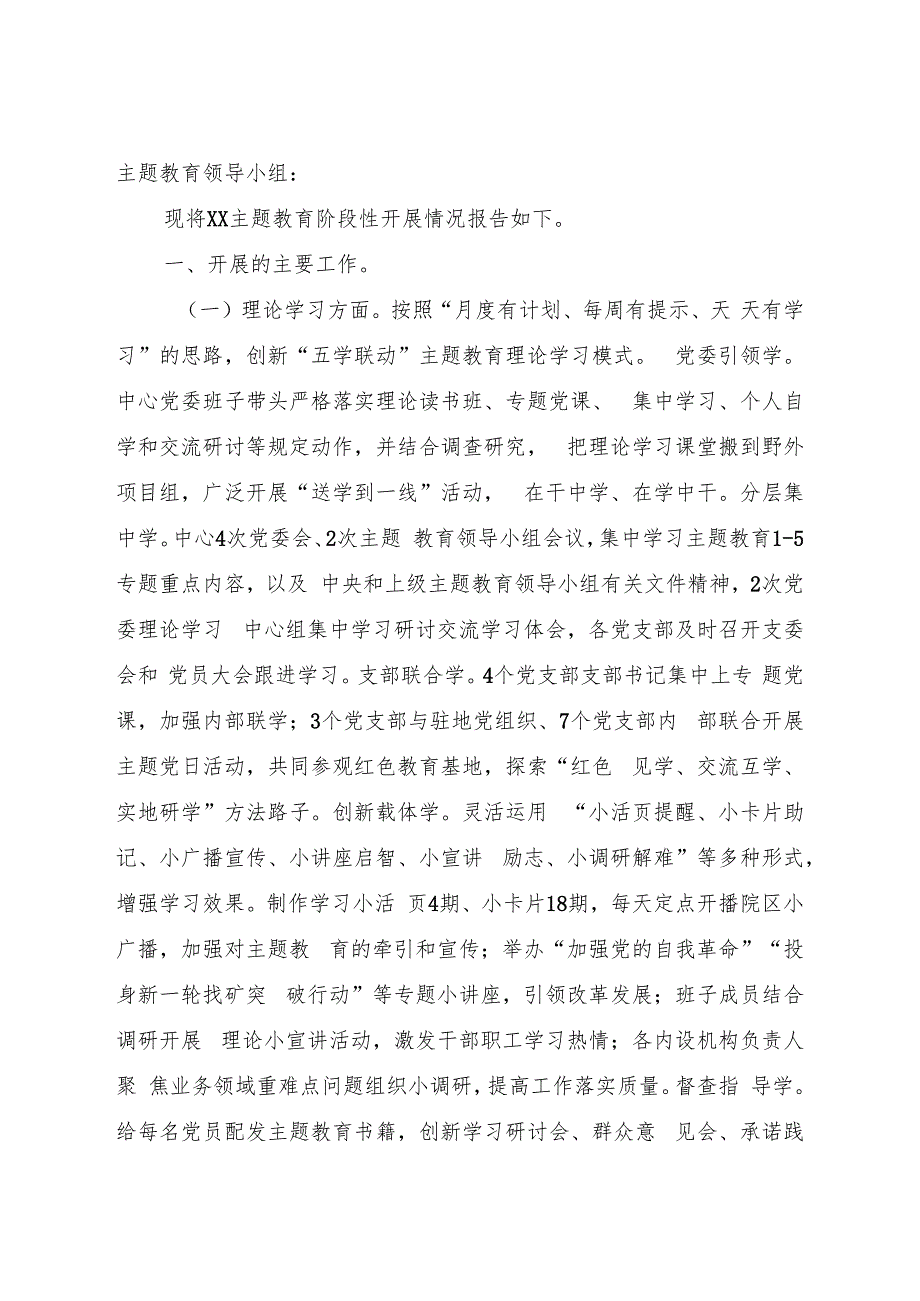 主题教育领导小组：
现将XX主题教育阶段性开展情况报告如下。
一、开展的主要工作。
（一）理论学习方面。按照“月度有计划、每周有提示、天 天有学
习”的思路，创新“五学联动”主题教育理论学习模式。 党委引领学。
中心党委班子带头严格落实理论读书班、专题党课、 集中学习、个人自
学和交流研讨等规定动作，并结合调查研究， 把理论学习课堂搬到野外
项目组，广泛开展“送学到一线”活动， 在干中学、在学中干。分层集
中学。中心4次党委会、2次主题 教育领导小组会议，集中学习主题教育1-5
专题重点内容，以及 中央和上级主题教育领导小组有关文件精神，2次党
委理论学习 中心组集中学习研讨交流学习体会，各党支部及时召开支委
会和 党员大会跟进学习。支部联合学。4个党支部支部书记集中上专 题党
课，加强内部联学；3个党支部与驻地党组织、7个党支部内 部联合开展
主题党日活动，共同参观红色教育基地，探索“红色 见学、交流互学、
实地研学”方法路子。创新载体学。灵活运用 “小活页提醒、小卡片助
记、小广播宣传、小讲座启智、小宣讲 励志、小调研解难”等多种形式，
增强学习效果。制作学习小活 页4期、小卡片18期，每天定点开播院区小
广播，加强对主题教 育的牵引和宣传；举办“加强党的自我革命”“投
身新一轮找矿突 破行动”等专题小讲座，引领改革发展；班子成员结合
调研开展 理论小宣讲活动，激发干部职工学习热情；各内设机构负责人
聚 焦业务领域重难点问题组织小调研，提高工作落实质量。督查指 导学。
给每名党员配发主题教育书籍，创新学习研讨会、群众意 见会、承诺践